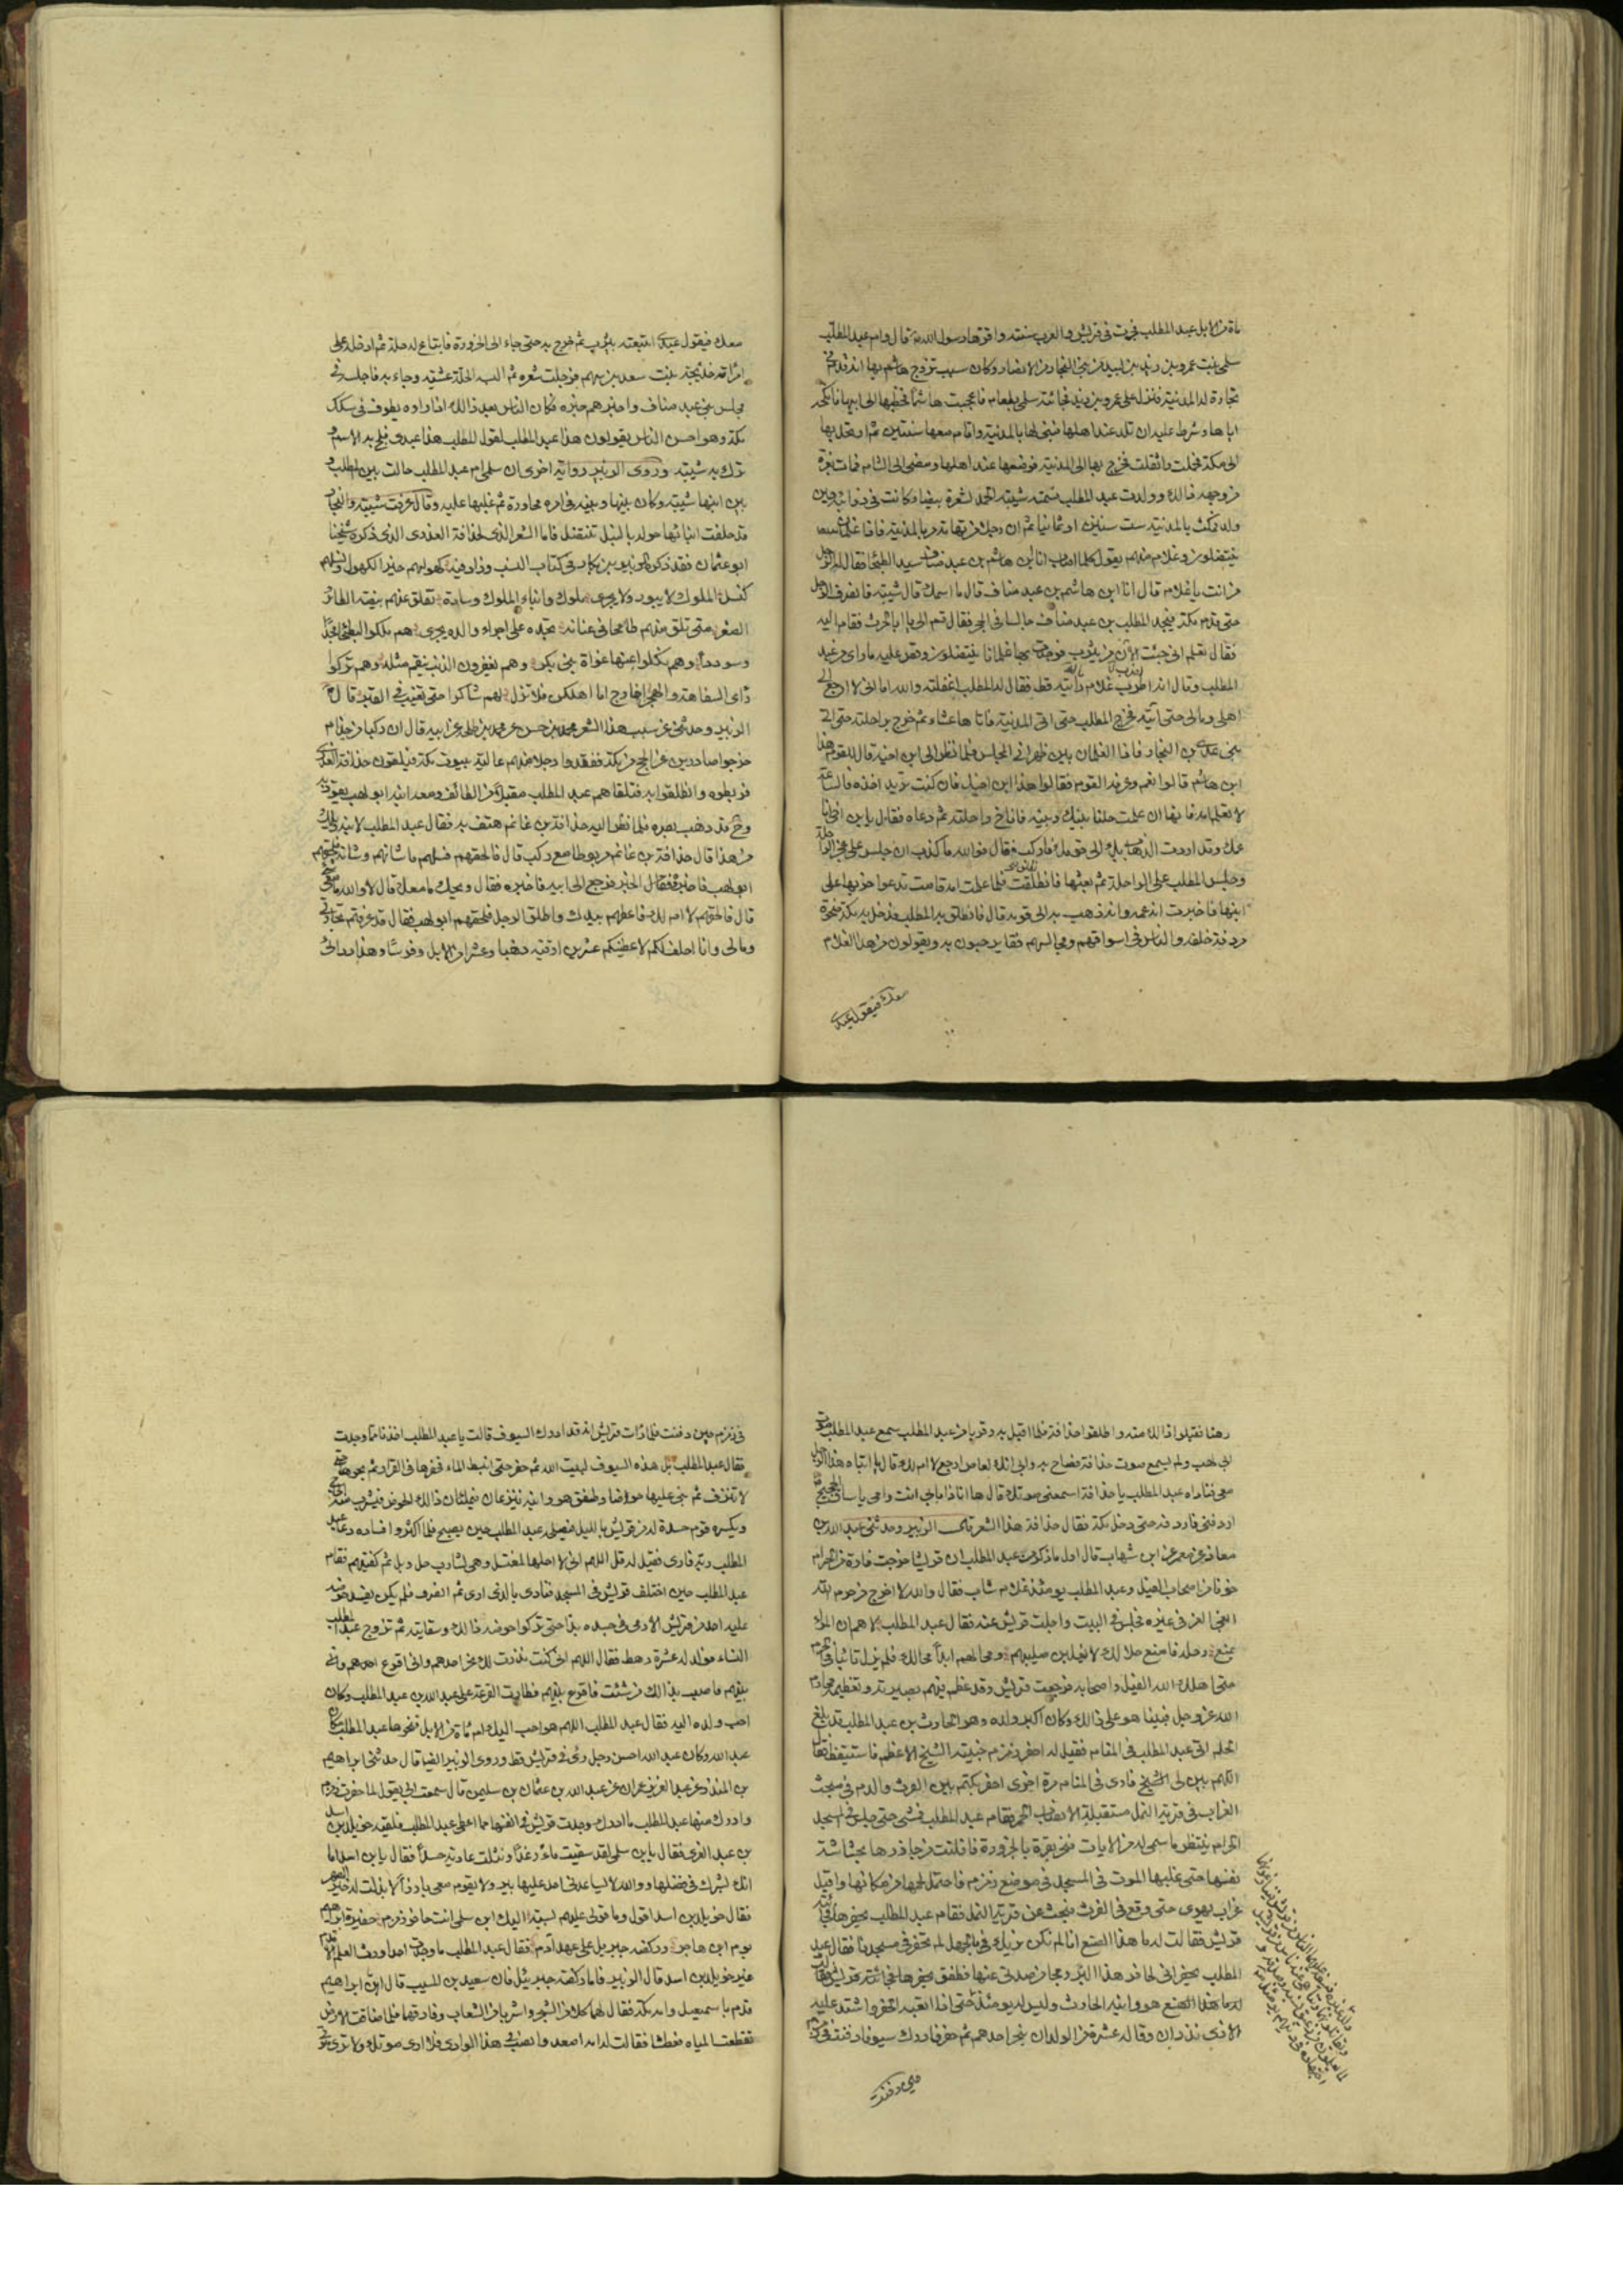 مأة من الابل عبد المطلب فجرت فى قريش والعرب سنته واقرها رسول الله قال وام عبد المطلب
سلمى بنت عمرو بن زيد بن لبيد من بنى النجار من الانصار وكان سبب تزوج هاشم بها انه قدم فى
تجارة له المدينة فنزل على عمرو بن زيد فجائته سلمى بطعام فاعجبت هاشما فخطبها الى ابيها فانكحه
اياها وشرط عليه ان تلد عند اهلها فبنى لها بالمدينة واقام معها سنتين ثم ارتحل بها
الى مكة فحملت واثقلت فخرج بها الى المدينة فوضعها عند اهلها ومضى الى الشام فمات بغزة
من وجهه ذالك وولدت عبد المطلب فسمته شيبة الحمد لشعرة بيضا وكانت فى ذوابته حين
ولد فمكث بالمدينة ست سنين او ثمانيا ثم ان رجلا من تهامة مر بالمدينة فاذا غلمان
ينتضلون وغلام منهم يقول كلما اصاب انا ابن هاشم بن عبد مناف سيد البطحا فقال له الرجل
من انت يا غلام قال انا ابن هاشم بن عبد مناف قال ما اسمك قال شيبة فانصرف الرجل
حتى قدم مكة فيجد المطلب بن عبد مناف جالسا فى الحجر فقال قم الى يا ابا الحرث فقام اليه
فقال تعلم انى جئت الآن من يثرب فوجدت بها غلمانا ينتضلون وقص عليه ما راى من عبد
المطلب وقال انه اضرب غلام رأيته قط فقال له المطلب اغفلته والله اما انى لا ارجع الى
اهلى ومالى حتى آتيه فخرج المطلب حتى اتى المدينة فاتاها عشاء ثم خرج براحلته حتى اتى
بنى عدى بن النجار فاذا الغلمان بين ظهرانى المجلس فلما نظر الى ابن اخيه قال للقوم هذا
ابن هاشم قالوا نعم وعرفه القوم فقالوا هذا ابن اخيك فان كنت تريد اخذه فالساعة
لا تعلم امه فانها ان علمت حلنا بينك وبينه فاناخ راحلته ثم دعاه فقال يابن اخى انا
عمك وقد اردت الذهاب بك الى قومك فاركب قال فوالله ما كذب ان جلس على عجز الراحلة
وجلس المطلب على الراحلة ثم بعثها فانطلقت فلما علمت امه قامت تدعو حزنها على
ابنها فاخبرت ان عمه وانه ذهب به الى قومه قال فانطلق به المطلب فدخل به مكة ضحوة
مردفه خلفه والناس فى اسواقهم ومجالسهم فقاموا يرحبون به ويقولون من هذا الغلام
معك فيقول عبدى
معك فيقول عبدى ابتعته بيثرب ثم خرج به حتى جاء الى الحزورة فابتاع له حلة ثم ادخله على
امرأته خديجة بنت سعد بن سهم فرجلت شعره ثم البسه الحلة عشية وجاء به فاجلسه فى
مجلس بنى عبد مناف واخبرهم خبره فكان الناس بعد ذالك اذا راوه يطوف فى سكك
مكة وهو احسن الناس يقولون هذا عبد المطلب لقول المطلب هذا عبدى فلج به الاسم و
ترك به شيبة وروى الزبير رواية اخرى ان سلمى ام عبد المطلب حالت بين المطلب و
بين ابنها شيبة وكان بينها وبينه فى امره محاورة ثم غلبها عليه وقال عرفت شيبة والنجار
قد جعلت ابناؤها حوله بالنبل تنتضل فاما الشعر الذى لحذافة العذرى الذى ذكره شيخنا
ابو عثمان فقد ذكره الزبير بن بكار فى كتاب النسب وزاد فيه كهولهم خير الكهول ونسلهم
كنسل الملوك لا يبور ولا يحرى ملوك وابناء الملوك وسادة تفلق عنهم بيضة الطائر
الصقر متى تلق منهم طامحا فى عنانه تجده على اجراء والده يجرى هم ملكوا البطحا مجدا
وسوددا وهم نكلوا عنها غواة بنى بكر وهم يغفرون الذنب ينقم مثله وهم تركوا
رأى السفاهة والهجر اخارج اما اهلكن فلا تزل لهم شاكرا حتى تغيب فى القبر قال
الزبير وحدثنى عن سبب هذا الشعر محمد بن حسن عن محمد بن طلحة عن ابيه قال ان ركبا من جذام
خرجوا صادرين عن الحج من مكة ففقدوا رجلا منهم عالية بيوت مكة فيلقون حذافة العذرى
فربطوه وانطلقوا به فتلقاهم عبد المطلب مقبلا من الطائف ومعه ابنه ابو لهب يقود به
وقد ذهب بصره فلما نظر اليه حذافة بن غانم هتف به فقال عبد المطلب لابنه ويلك
من هذا قال حذافة بن غانم مربوطا مع ركب قال فالحقهم فسلهم ما شانهم وشانه فلحقهم
ابو لهب فاخبروه الخبر فرجع الى ابيه فاخبره فقال ويحك ما معك قال لا والله ما معى شىء
قال فالحقهم لا ام لك فاعطهم بيدك واطلق الرجل فلحقهم ابو لهب فقال قد عرفتم تجارتى
ومالى وانا احلف لكم لاعطينكم عشرين اوقية ذهبا وعشرا من الابل وفرسا وهذا ردائى
رهنا فقبلوا ذالك منه واطلقوا حذافة فلما اقبل به وقربا من عبد المطلب سمع عبد المطلب صوت
ابى لهب ولم يسمع صوت حذافة فصاح به وابى انك لعاص ارجع لا ام لك قال يا ابتاه هذا الرجل
معى فناداه عبد المطلب يا حذافة اسمعنى صوتك قال ها انا ذا بابى انت وامى يا ساقى الحجيج
اردفنى فاردفه حتى دخل مكة فقال حذافة هذا الشعر قال الزبير وحدثنى عبد الله بن
معاذ عن معمر عن ابن شهاب قال اول ما ذكر من عبد المطلب ان قريشا خرجت فارة من الحرم
خوفا من اصحاب الفيل وعبد المطلب يومئذ غلام شاب فقال والله لا اخرج من حرم الله
ابغى العز فى غيره فجلس فى البيت واجلت قريش عنه فقال عبد المطلب لا هم ان المرء
يمنع رحله فامنع حلالك لا يغلبن صليبهم ومحالهم ابدا محالك فلم يزل ثابتا فى الحرم
حتى اهلك الله الفيل واصحابه فرجعت قريش وقد عظم فيهم بصبره وتعظيمه محارم
الله عز وجل فبينا هو على ذالك وكان اكبر ولده وهو الحارث بن عبد المطلب قد بلغ
الحلم اتى عبد المطلب فى المنام فقيل له احفر زمزم خبيئة الشيخ الاعظم فاستيقظ فقال
اللهم بين لى الشيخ فارى فى المنام مرة اخرى احفر بكتم بين الفرث والدم فى مبحث
الغراب فى قرية النمل مستقبلة الانصاب الحمر فقام عبد المطلب فمشى حتى جلس فى المسجد
الحرام ينتظر ما سمى له من الايات فنحر بقرة بالحزورة فانفلتت من جازرها بحشاشة
نفسها حتى غلبها الموت فى المسجد فى موضع زمزم فاحتمل لحمها من مكانها واقبل
غراب يهوى حتى وقع فى الفرث فبحث عن قرية النمل فقام عبد المطلب يحفر هنالك فجائته
قريش فقالت له ما هذا الصنع انا لم نكن نزنك بالجهل لم تحفر فى مسجدنا فقال عبد
المطلب انى لحافر هذا البئر ومجاهد من صدنى عنها فطفق يحفر
له ما هذا الصنع هو وابنه الحارث وليس له يومئذ حتى اذا اتعبه الحفر واشتد عليه
الاذى نذر ان وفى له عشرة من الولدان ينحر احدهم ثم حفر فادرك سيوفا دفنت فى زمزم
حين دفنت
فى زمزم حين دفنت فلما رأت قريش انه قد ادرك السيوف قالت يا عبد المطلب احذنا مما وجدت
فقال عبد المطلب بل هذه السيوف لبيت الله ثم حفر حتى انبط الماء فحفرها فى القرار ثم بحرها حتى
لا تنزف ثم بنى عليها حوضا وطفق هو وابنه ينزعان فيملئان ذالك الحوض فيشرب منه الحاج
ويكسره قوم حسدة له من قريش بالليل فيصلحه عبد المطلب حين يصبح فلما اكثروا افساده دعا عبد
المطلب ربه فارى فقيل له قل اللهم انى لا احلها لمغتسل وهى لشارب حل وبل ثم كفيتهم فقام
عبد المطلب حين اختلف قريش فى المسجد فنادى بالذى ارى ثم انصرف فلم يكن يفسد حوضه
عليه احد من قريش الا رمى فى جسده بداء حتى تركوا حوضه ذالك وسقايته ثم تزوج عبد المطلب
النساء فولد له عشرة رهط فقال اللهم انى كنت نذرت لك نحر احدهم وانى اقرع بينهم
بينهم فاصب بذالك من شئت فاقرع بينهم فطارت القرعة على عبد الله بن عبد المطلب وكان
احب ولده اليه فقال عبد المطلب اللهم هو احب اليك ام مأة من الابل فنحرها عبد المطلب مكان
عبد الله وكان عبد الله احسن رجل رئى فى قريش قط وروى الزبير ايضا قال حدثنى ابراهيم
بن المنذر عن عبد العزيز عمران عن عبد الله بن عثمان بن سليمن قال سمعت ابى يقول لما حفرت زمزم
وادرك منها عبد المطلب ما ادرك وجدت قريش فى انفسها مما اعطى عبد المطلب فلقيه خويلد بن اسد
بن عبد العزى فقال يابن سلمى لقد سقيت ماء رغدا ونثلت عادية حسدا فقال يابن اسد اما
انك تشرك فى فضلها والله لا يساعدنى احد عليها ببر ولا يقوم معى بارزا الا بذلت له خير الصهر
فقال خويلد بن اسد اقول وما قولى عليهم بسبة اليك ابن سلمى انت حافر زمزم حفيرة ابراهيم
يوم ابن هاجر وركضة جبريل على عهد آدم فقال عبد المطلب ما وجدت احدا ورث العلم الاقدم
غير خويلد بن اسد قال الزبير فاما ركضة جبرئيل فان سعيد بن المسيب قال ان ابراهيم
قدم باسمعيل وامه مكة فقال لهما كلا من الشجر واشربا من الشعاب وفارقهما فلما ضاقت الارض
تقطعت المياه فعطشا فقالت له امه اصعد وانصب فى هذا الوادى فلا ارى موتك ولا ترى موتى